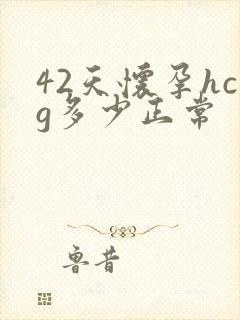 42天怀孕hc
g多少正常
鲁昔